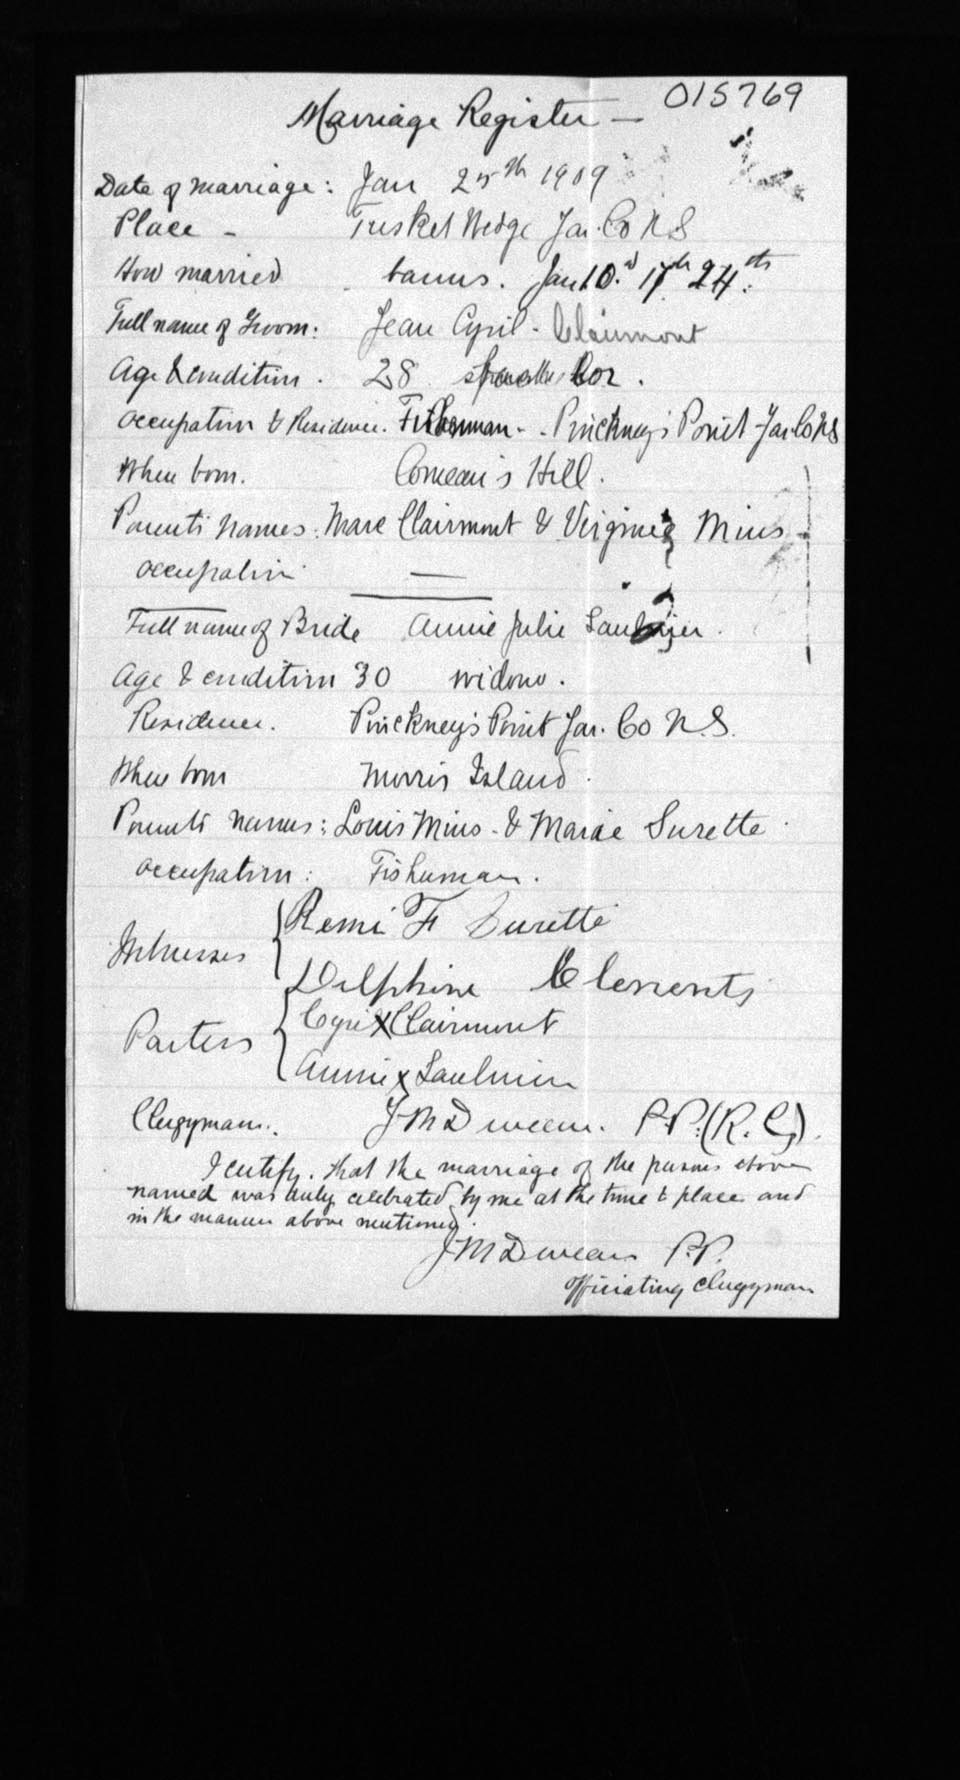 015769
Marriage Register —
Date of marriage: Jan 25th 1909
Place - Tusket Wedge Yar. Co N S
How married banns. Jan 10. 17th 24th.
Full name of Groom: Jean Cyril - Clairmont
Age & condition. 28
Occupation & Residence. Fisherman - - Pinckney's Point Yar Co NS
Where born. Comeau's Hill.
Parents Names: Marc Clairmont & Virginie Mius -
occupation —
Full name of Bride Annie Julie Saulnier.
Age & condition 30 widow.
Residence. Pinckney's Point Yar. Co N.S.
Where born Morris Island.
Parents names: Louis Mius - & Marie Surette.
occupation: Fisherman.
Witnesses { Remi F Surette
Delphine Clements
Parties { Cyri X Clairmont
Annie X Saulnier
Clergyman. P.P. (R.C.).
I certify that the marriage of the persons above
named was duly celebrated by me at the time & place and
in the manner above mentioned.
P.P.
officiating clergyman